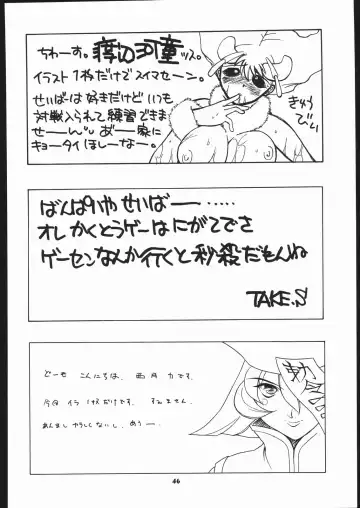 ちわーす。痺切河童ッス。
イラスト1枚だけでスイマセーン。
せいばーは好きだけどいつも
対戦入られて練習できま
せーん。あー家に
キョータイほしーなー。
きゅう
びん
ばんぱいやせいばー……
オレかくとうゲーはにがてでさ
ゲーセンなんか行くと秒殺だもんね
TAKE.S
どーも こんにちは、西月 力です。
今回 イラ1枚だけです。すみません。
あんまし やらしくないし、あうー。
46